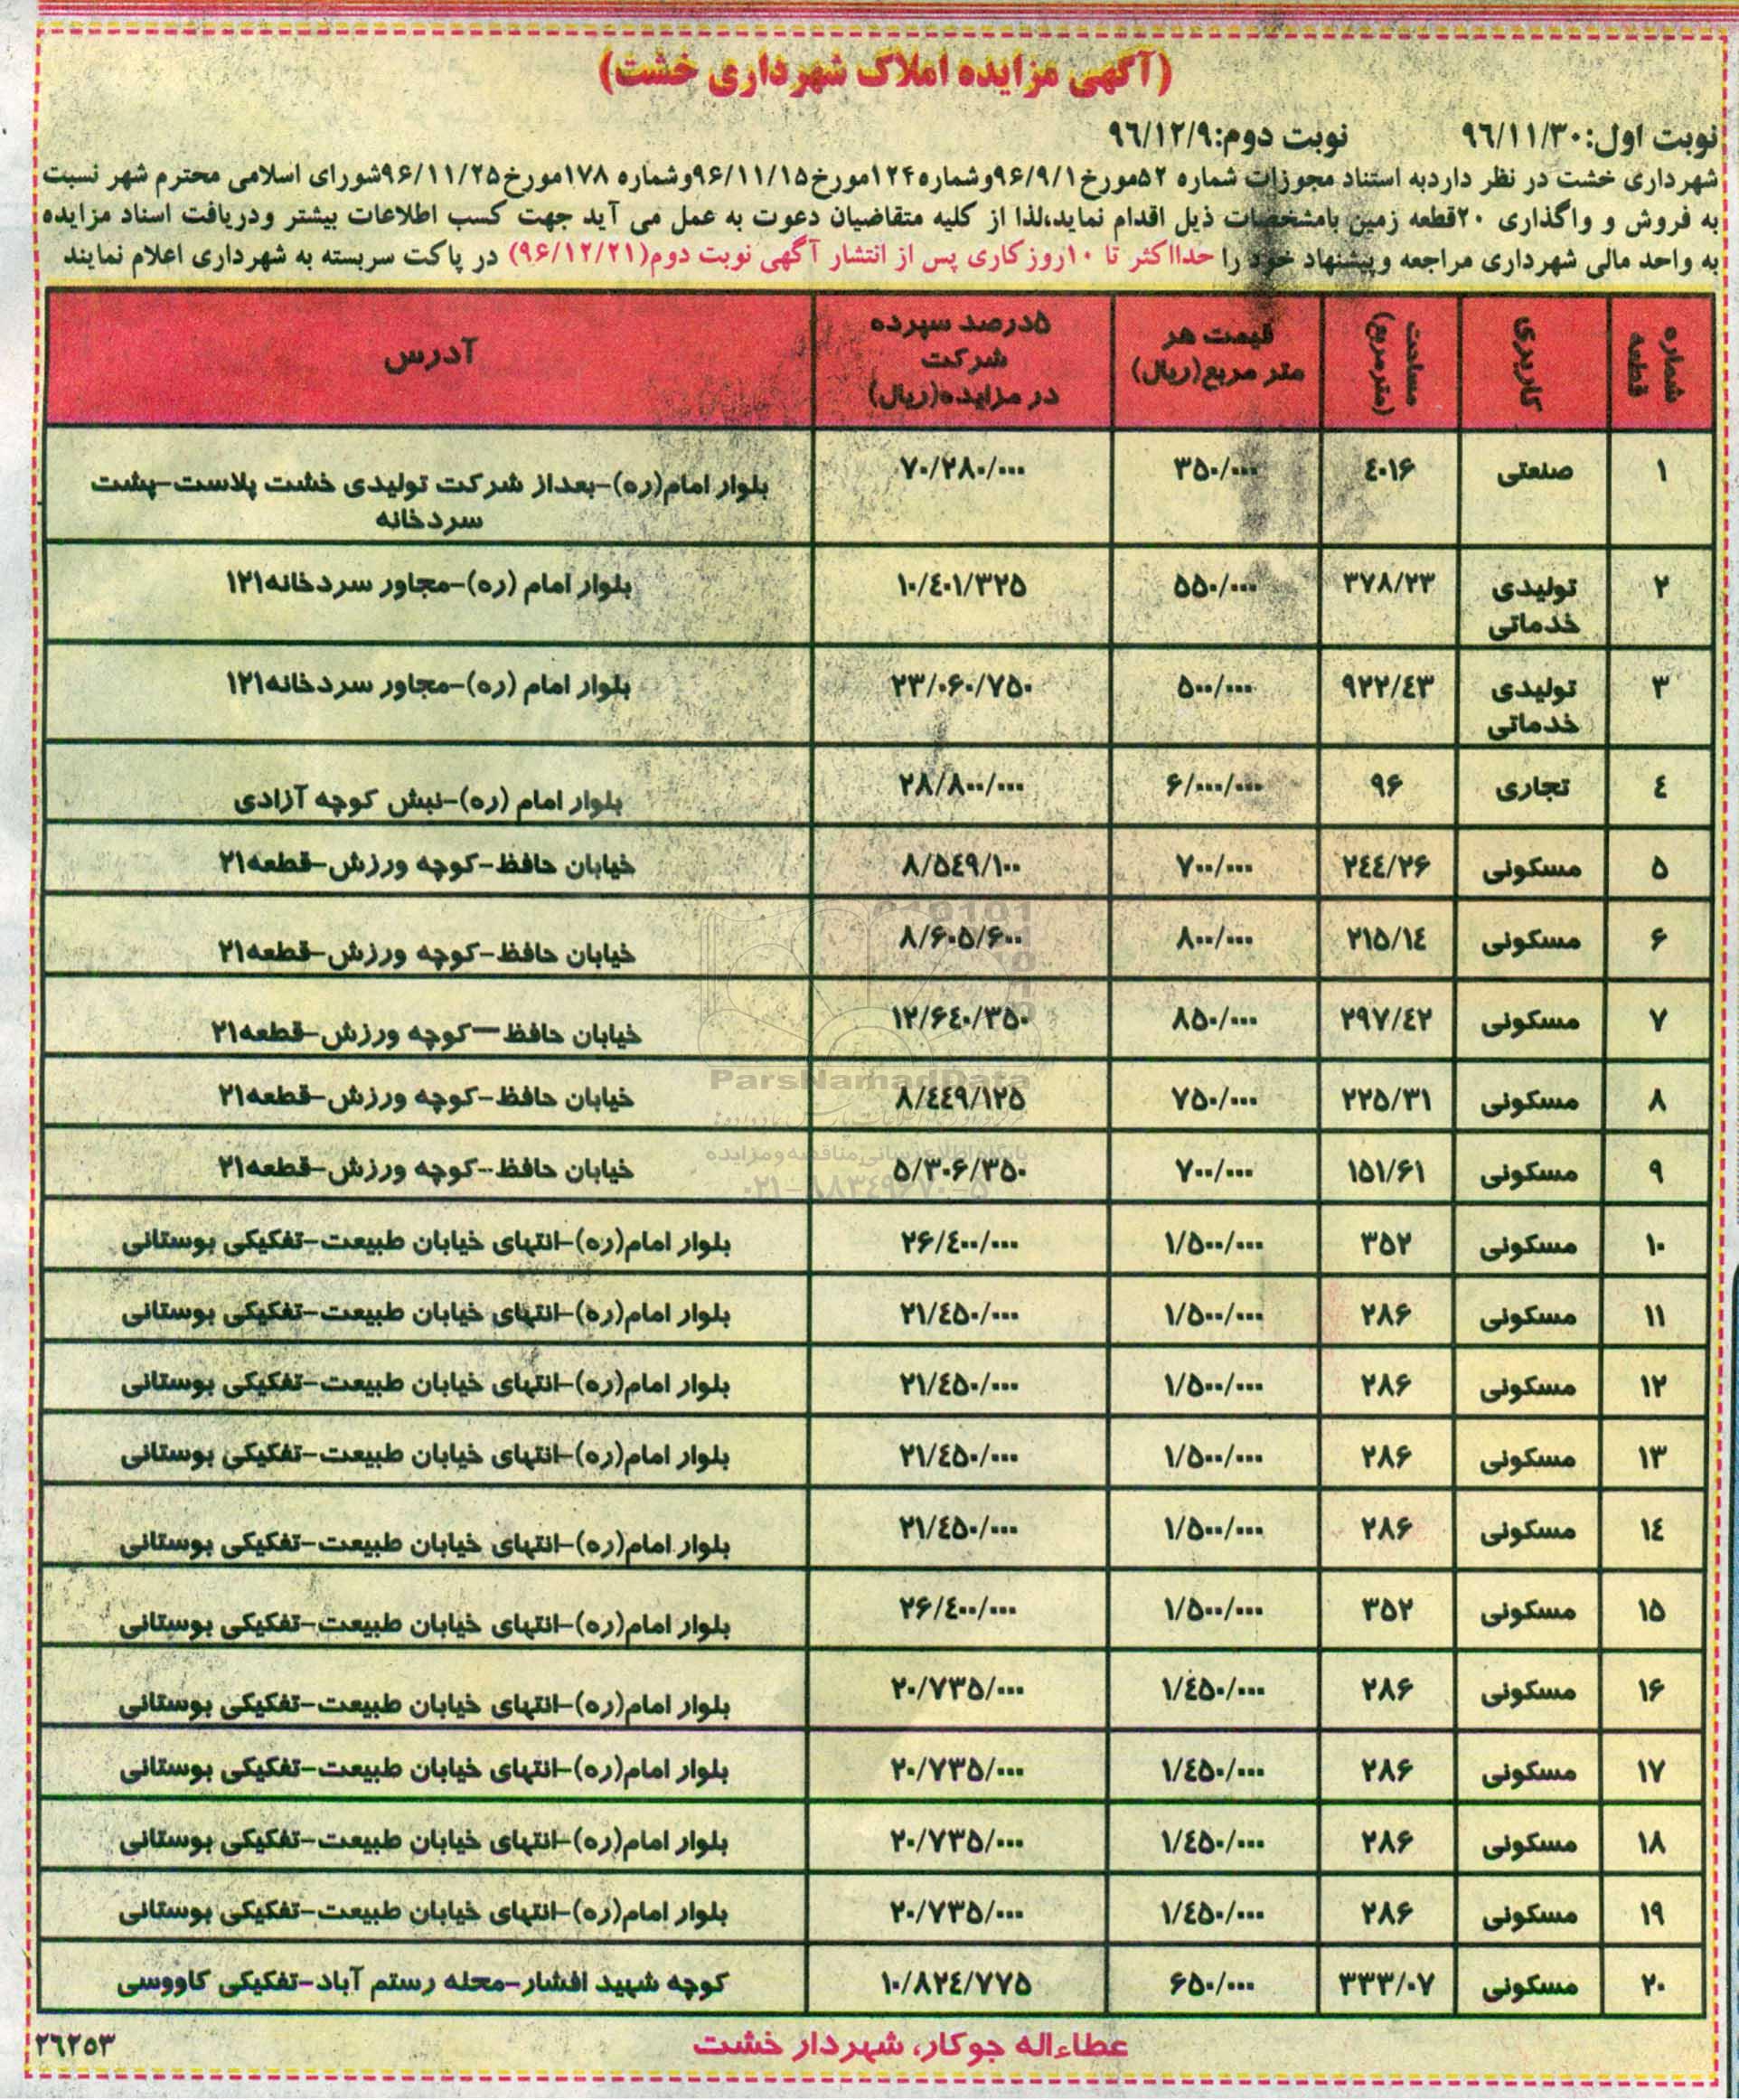 (آگهی مزایده املاک شهرداری خشت)
نوبت اول:۹۶/۱۱/۳۰ نوبت دوم:۹۶/۱۲/۹
شهرداری خشت در نظر داردبه استناد مجوزات شماره ۵۲مورخ۹۶/۹/۱وشماره۱۲۴مورخ۹۶/۱۱/۱۵وشماره ۱۷۸مورخ۹۶/۱۱/۲۵شورای اسلامی محترم شهر نسبت
به فروش و واگذاری ۲۰قطعه زمین بامشخصات ذیل اقدام نماید،لذا از کلیه متقاضیان دعوت به عمل می آید جهت کسب اطلاعات بیشتر ودریافت اسناد مزایده
به واحد مالی شهرداری مراجعه وپیشنهاد خود را حدااکثر تا ۱۰روزکاری پس از انتشار آگهی نوبت دوم(۹۶/۱۲/۲۱) در پاکت سربسته به شهرداری اعلام نمایند
شماره قطعه کاربری مساحت (مترمربع) قیمت هر متر مربع(ریال) ۵درصد سپرده شرکت در مزایده(ریال) آدرس
۱ صنعتی ٤۰۱۶ ۳۵۰/۰۰۰ ۷۰/۲۸۰/۰۰۰ بلوار امام(ره)-بعداز شرکت تولیدی خشت پلاست-پشت
سردخانه
۲ تولیدی خدماتی ۳۷۸/۲۳ ۵۵۰/۰۰۰ ۱۰/٤۰۱/۳۲۵ بلوار امام (ره)-مجاور سردخانه۱۲۱
۳ تولیدی خدماتی ۹۲۲/٤۳ ۵۰۰/۰۰۰ ۲۳/۰۶۰/۷۵۰ بلوار امام (ره)-مجاور سردخانه۱۲۱
٤ تجاری ۹۶ ۶/۰۰۰/۰۰۰ ۲۸/۸۰۰/۰۰۰ بلوار امام (ره)-نبش کوچه آزادی
۵ مسکونی ۲٤٤/۲۶ ۷۰۰/۰۰۰ ۸/۵٤۹/۱۰۰ خیابان حافظ-کوچه ورزش-قطعه۲۱
۶ مسکونی ۲۱۵/۱٤ ۸۰۰/۰۰۰ ۸/۶۰۵/۶۰۰ خیابان حافظ-کوچه ورزش-قطعه۲۱
۷ مسکونی ۲۹۷/٤۲ ۸۵۰/۰۰۰ ۱۲/۶٤۰/۳۵۰ خیابان حافظ –کوچه ورزش-قطعه۲۱
۸ مسکونی ۲۲۵/۳۱ ۷۵۰/۰۰۰ ۸/٤٤۹/۱۲۵ خیابان حافظ-کوچه ورزش-قطعه۲۱
۹ مسکونی ۱۵۱/۶۱ ۷۰۰/۰۰۰ ۵/۳۰۶/۳۵۰ خیابان حافظ-کوچه ورزش-قطعه۲۱
۱۰ مسکونی ۳۵۲ ۱/۵۰۰/۰۰۰ ۲۶/٤۰۰/۰۰۰ بلوار امام(ره)-انتهای خیابان طبیعت-تفکیکی بوستانی
۱۱ مسکونی ۲۸۶ ۱/۵۰۰/۰۰۰ ۲۱/٤۵۰/۰۰۰ بلوار امام(ره)-انتهای خیابان طبیعت-تفکیکی بوستانی
۱۲ مسکونی ۲۸۶ ۱/۵۰۰/۰۰۰ ۲۱/٤۵۰/۰۰۰ بلوار امام(ره)-انتهای خیابان طبیعت-تفکیکی بوستانی
۱۳ مسکونی ۲۸۶ ۱/۵۰۰/۰۰۰ ۲۱/٤۵۰/۰۰۰ بلوار امام(ره)-انتهای خیابان طبیعت-تفکیکی بوستانی
۱٤ مسکونی ۲۸۶ ۱/۵۰۰/۰۰۰ ۲۱/٤۵۰/۰۰۰ بلوار امام(ره)-انتهای خیابان طبیعت-تفکیکی بوستانی
۱۵ مسکونی ۳۵۲ ۱/۵۰۰/۰۰۰ ۲۶/٤۰۰/۰۰۰ بلوار امام(ره)-انتهای خیابان طبیعت-تفکیکی بوستانی
۱۶ مسکونی ۲۸۶ ۱/٤۵۰/۰۰۰ ۲۰/۷۳۵/۰۰۰ بلوار امام(ره)-انتهای خیابان طبیعت-تفکیکی بوستانی
۱۷ مسکونی ۲۸۶ ۱/٤۵۰/۰۰۰ ۲۰/۷۳۵/۰۰۰ بلوار امام(ره)-انتهای خیابان طبیعت-تفکیکی بوستانی
۱۸ مسکونی ۲۸۶ ۱/٤۵۰/۰۰۰ ۲۰/۷۳۵/۰۰۰ بلوار امام(ره)-انتهای خیابان طبیعت-تفکیکی بوستانی
۱۹ مسکونی ۲۸۶ ۱/٤۵۰/۰۰۰ ۲۰/۷۳۵/۰۰۰ بلوار امام(ره)-انتهای خیابان طبیعت-تفکیکی بوستانی
۲۰ مسکونی ۳۳۳/۰۷ ۶۵۰/۰۰۰ ۱۰/۸۲٤/۷۷۵ کوچه شهید افشار-محله رستم آباد-تفکیکی کاووسی
عطاءاله جوکار، شهردار خشت
۲۶۲۵۳
ParsNamadData
۰۲۱-۸۸۳٤۹۶۷۰-۵